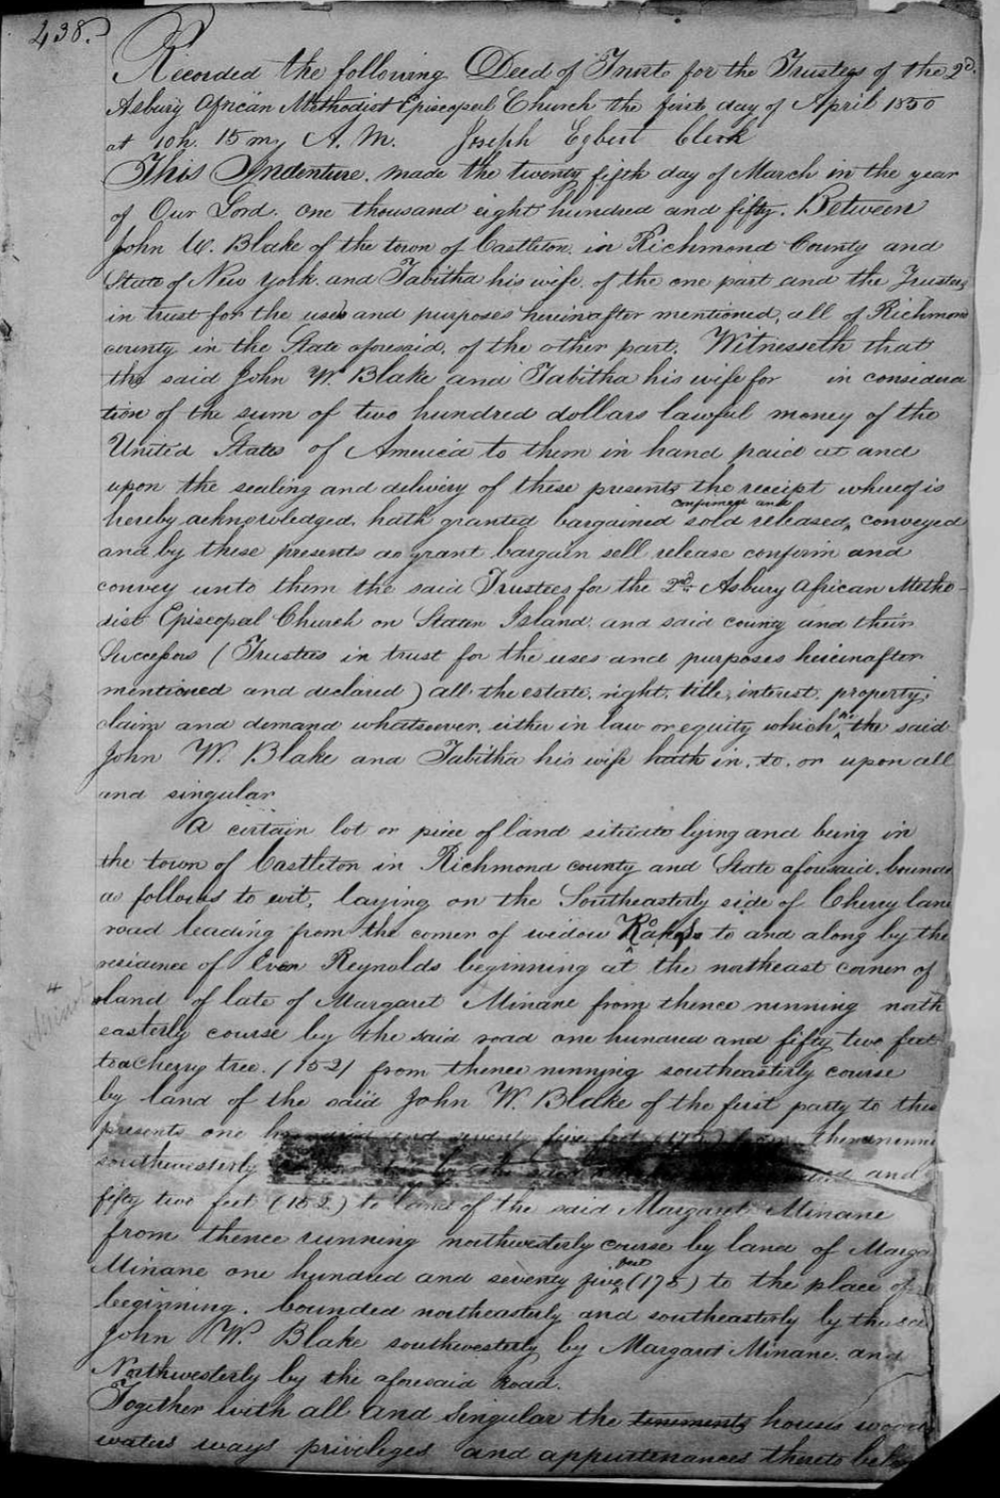 438.
Recorded the following Deed of Trust for the Trustees of the 2d.
Asbury African Methodist Episcopal Church the first day of April 1850
at 10h. 15m, A.M. Joseph Egbert Clerk
This Indenture. made the twenty fifth day of March in the year
of Our Lord. one thousand eight hundred and fifty. Between
John W. Blake of the town of Castleton. in Richmond County and
State of New York. and Tabitha his wife. of the one part and the Trustees
in trust for the uses and purposes hereinafter mentioned, all of Richmond
county in the State aforesaid. of the other part. Witnesseth that
the said John W. Blake and Tabitha his wife for in considera
tion of the sum of two hundred dollars lawful money of the
United States of America to them in hand paid at and
upon the sealing and delivery of these presents the receipt whereof is
hereby acknowledged, hath granted bargained sold released, confirmed and conveyed
and by these presents do grant bargain sell release confirm and
convey unto them the said Trustees for the 2d. Asbury African Metho-
dist Episcopal Church on Staten Island. and said county and their
Successors (Trustees in trust for the uses and purposes hereinafter
mentioned and declared) all the estate, right, title, interest, property,
claim and demand whatsoever, either in law or equity which the said
John W. Blake and Tabitha his wife hath in, to, or upon all
and singular
A certain lot or piece of land situate lying and being in
the town of Castleton in Richmond county and State aforesaid. bounded
as follows to wit, laying on the Southeasterly side of Cherry lane
road leading from the corner of widow to and along by the
residence of Reynolds beginning at the northeast corner of
land of late of Margaret Minane from thence running north
easterly course by the said road one hundred and fifty two feet
to a cherry tree. (152) from thence running southeasterly course
by land of the said John W. Blake of the first party to this
presents one hundred and seventy five feet (175) from thence running
southwesterly and
fifty two feet (152) to land of the said Margaret Minane
from thence running northwesterly course by land of Marga
Minane one hundred and seventy five feet (175) to the place of
beginning. bounded northeasterly and southeasterly by the
John W. Blake southwesterly by Margaret Minane. and
Northwesterly by the aforesaid road.
Together with all and Singular the tenements houses
waters ways privileges and appurtenances thereto